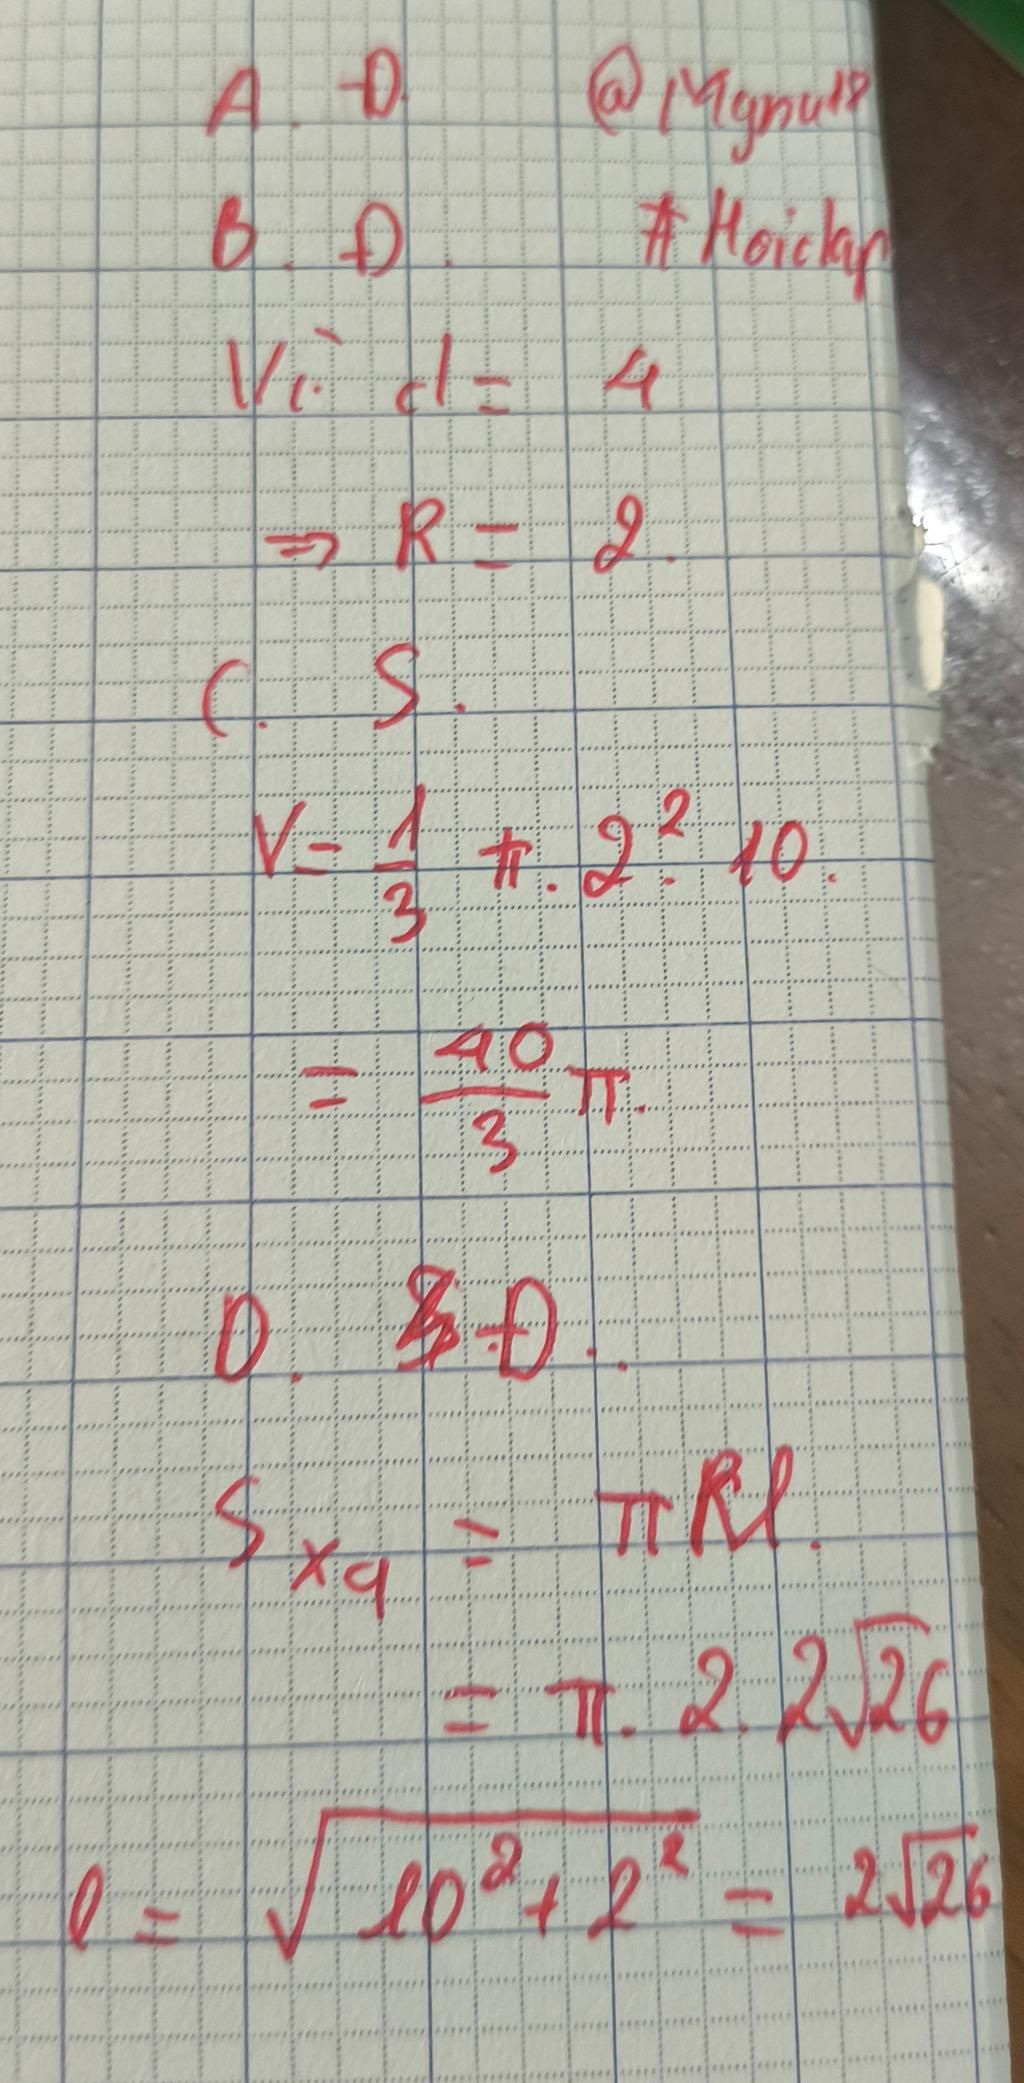 A. Đ. @Mynu18
B. Đ. #Hoidap
Vì d = 4
⇒ R = 2.
C. S.
V = 1/3 π. 2². 10.
= 40/3 π.
D. Đ..
Sxq = πRl.
= π. 2. 2√26
l = √(10² + 2²) = 2√26